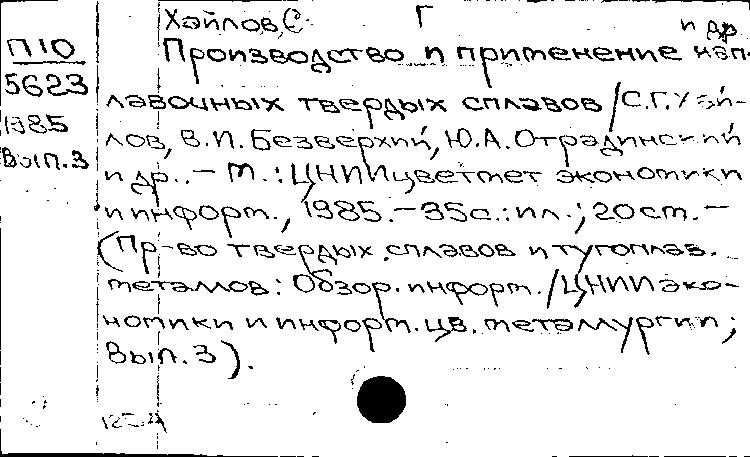 Хэйлов С. Г и др
П10 Производство и применение нап-
5623 лавочных твердых сплавов / С.Г. Хэй-
1985 лов, В.И. Безверхий, Ю.А. Отрадинский
Вып.3 и др. – М.: ЦНИИцветмет экономики
и информ., 1985. – 35с.: ил.; 20см. –
(Пр-во твердых сплавов и тугоплав.
металлов: Обзор. информ. / ЦНИИ эко-
номики и информ. цв. металлургии;
Вып. 3).